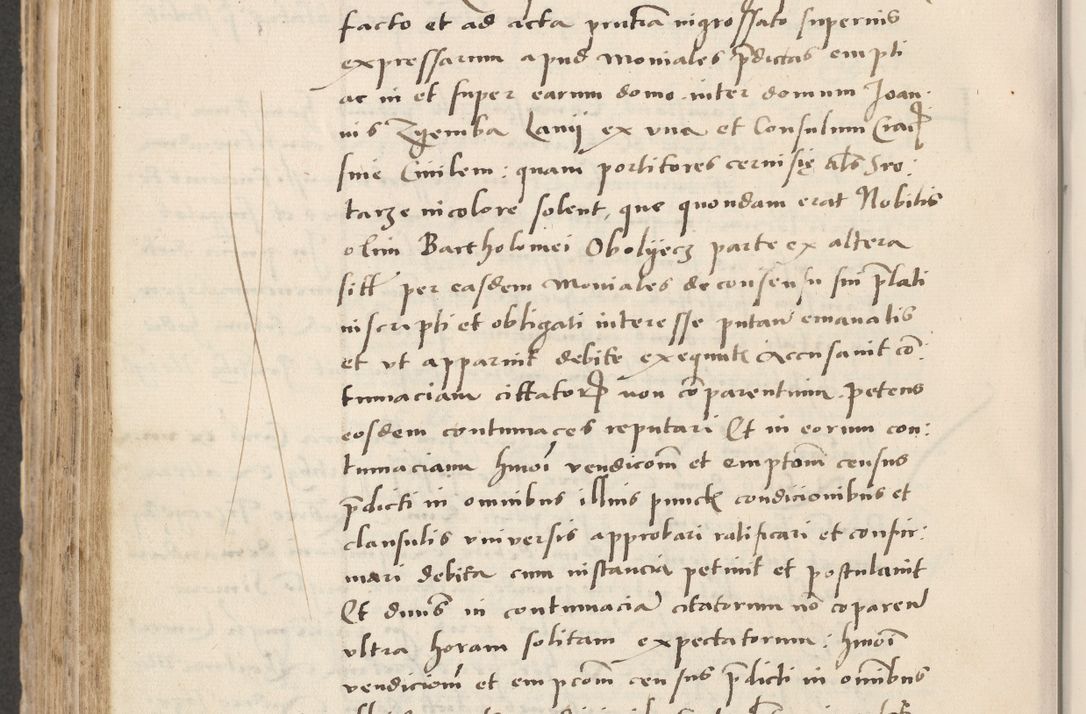 facto et ad acta pñtia ingrossato superius
expressarum apud Moniales p̃dictas empti
ac in et super earum domo inter domum Joan:
nis Zyemba Lanij ex vna et Consulum Crac̃
siue Ciuilem: quam portitores ceruisię als Sro:
tarze incolore solent, que quondam erat Nobilis
olim Bartholomei Obolyecz parte ex altera
sitt̃ per easdem Moniales de consensu sui p̃lati
inscripti et obligati interesse putañ emanatis
et vt apparuit debite exequut̃ Accusauit cõ:
tumaciam cittator̃ non cõparentium petens
eosdem contumaces reputari Et in eorum con:
tumaciam hmoi vendicioñ et emptioñ census
p̃dicti in omnibus illius punct̃ condicionibus et
clausulis vniversis approbari ratificari et confir:
mari debita cum instancia petiuit et postulauit
Et dñus in contumaciã citatorum nõ cõpareñ
vltra horam solitam expectatorum: hmoi
vendicioñ et empcioñ census p̃dicti in om̃ibus